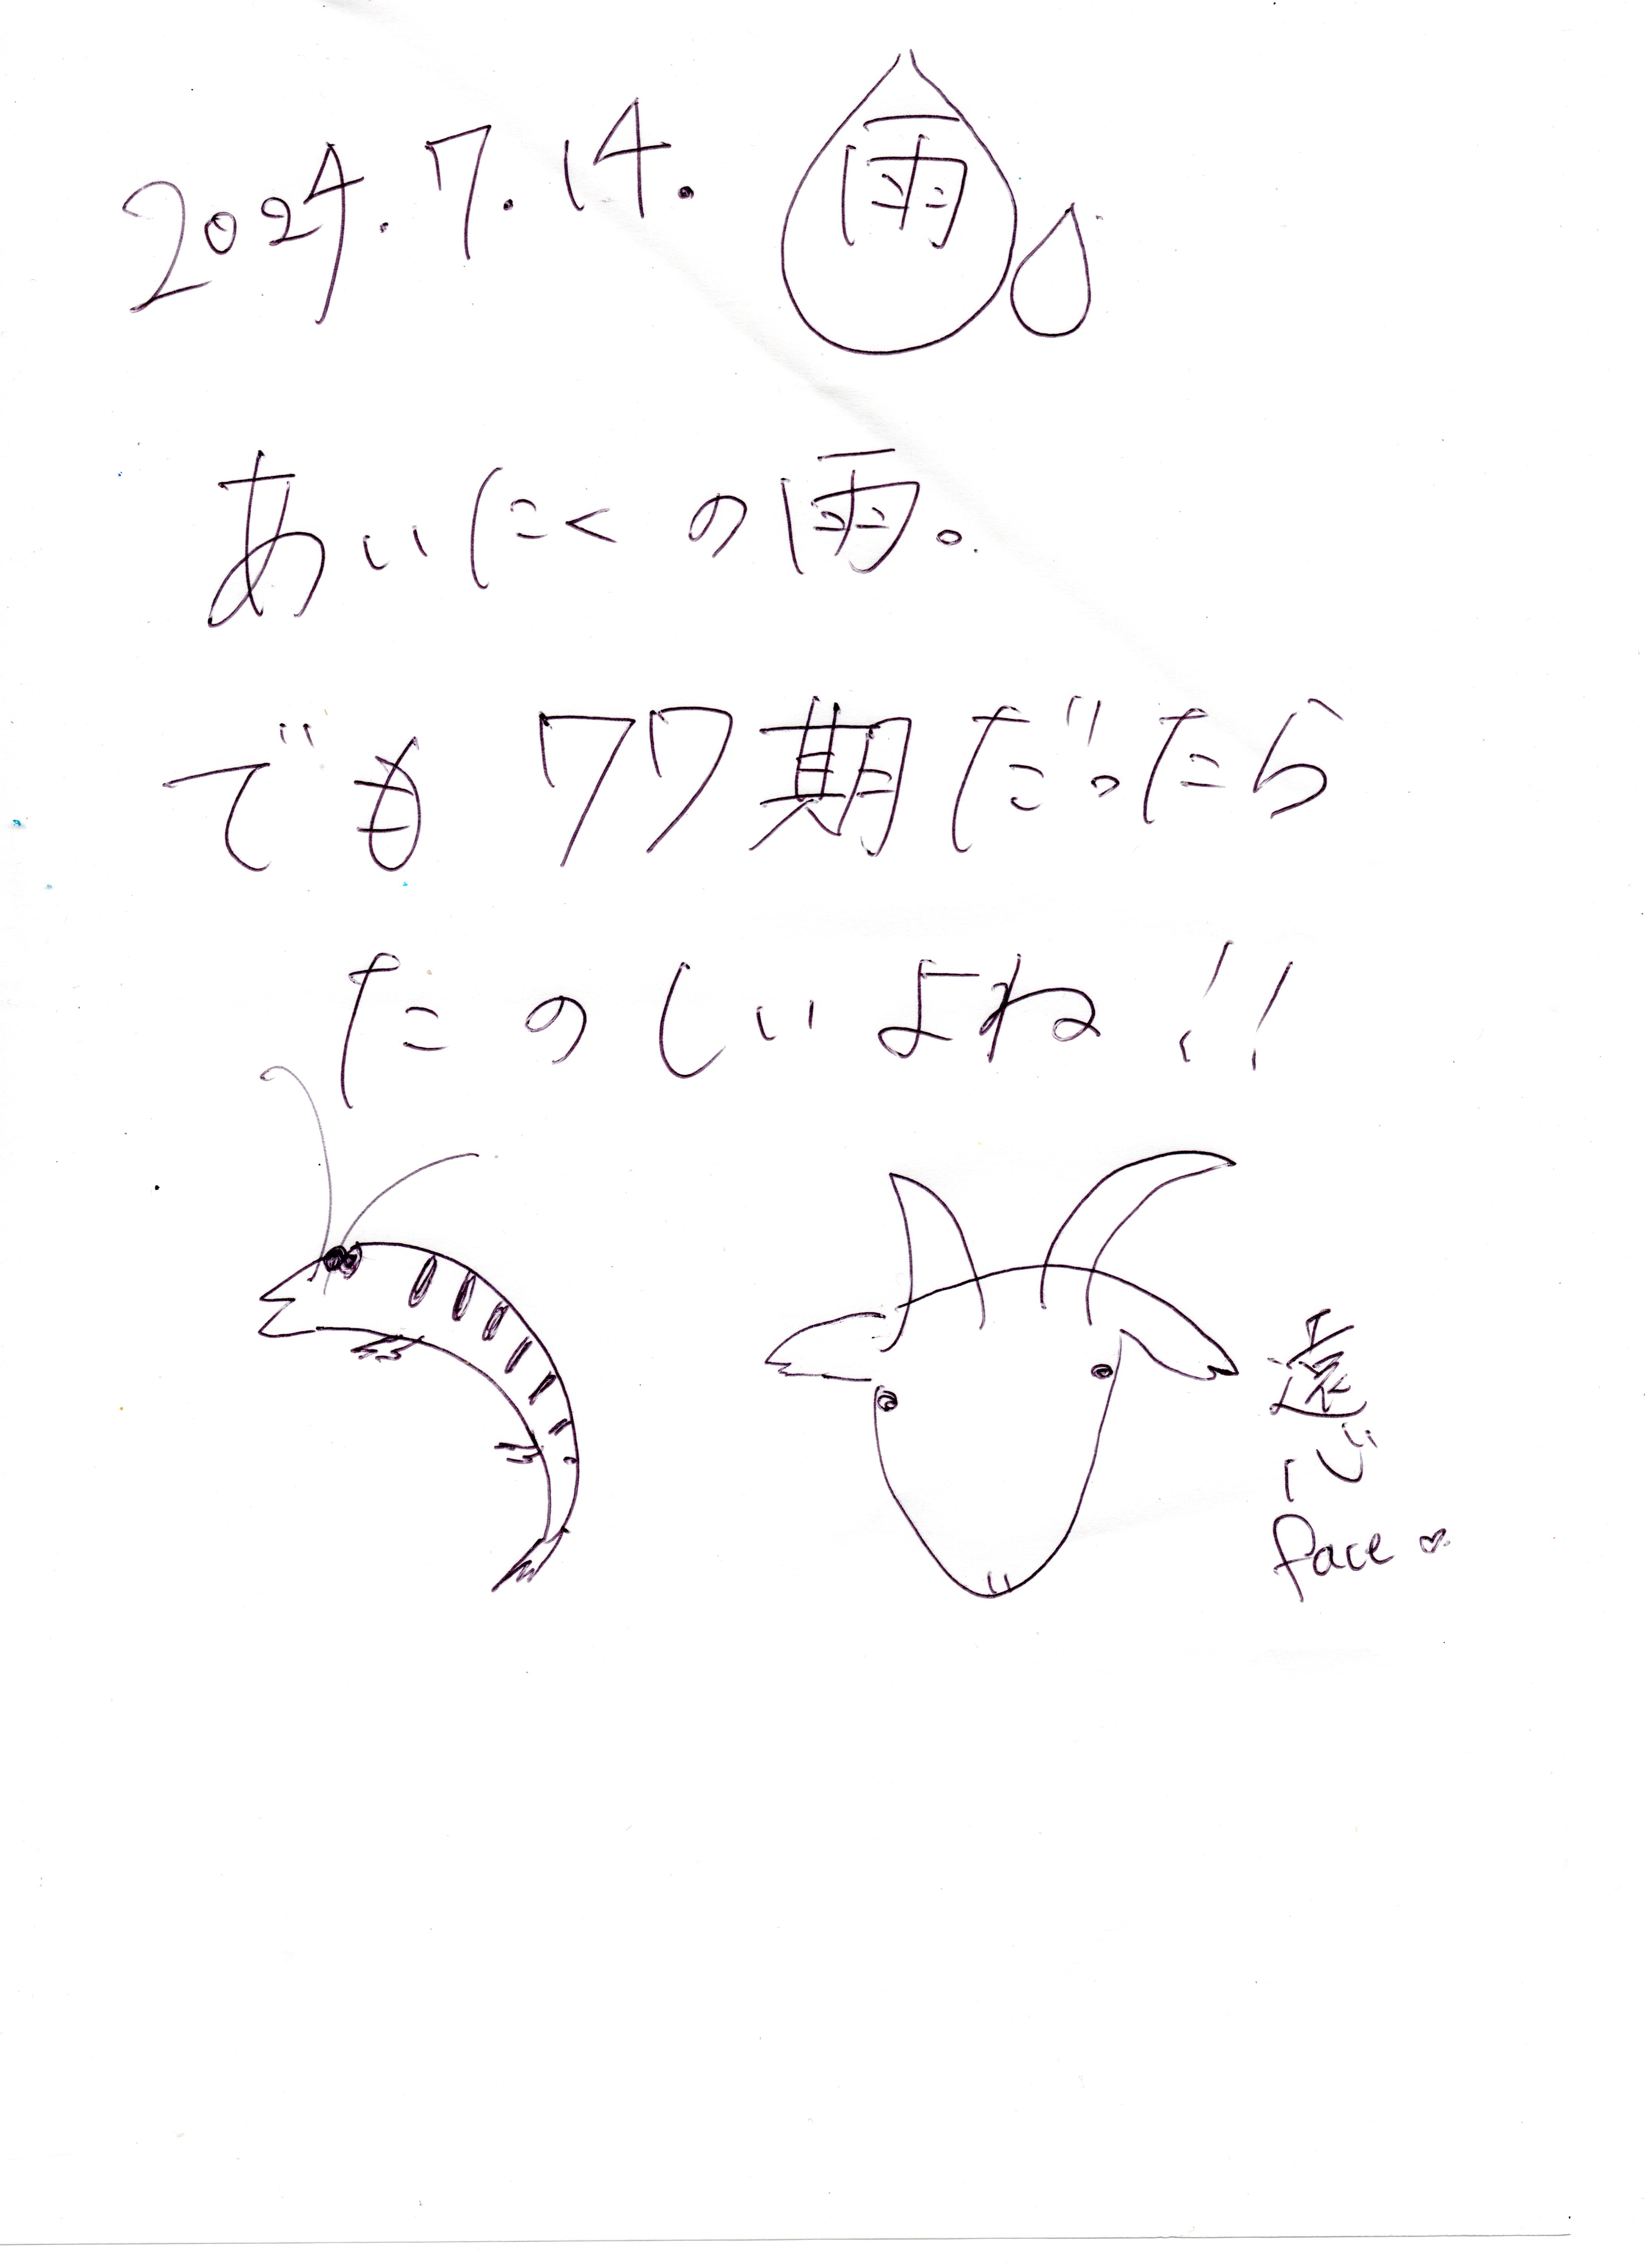 2024.7.14. 雨
あいにくの雨。
でも77期だったら
たのしいよね!!
遠
心
face♡